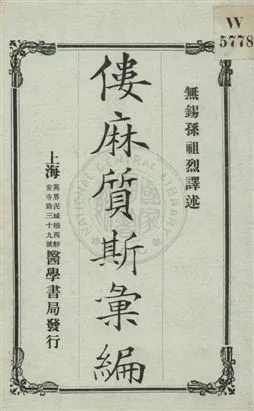 W
5778
無錫孫祖烈譯述
僂麻質斯彙編
上海
英界泥城橋西靜
安寺路三十九號
醫學書局發行
NATIONAL CENTRAL LIBRARY